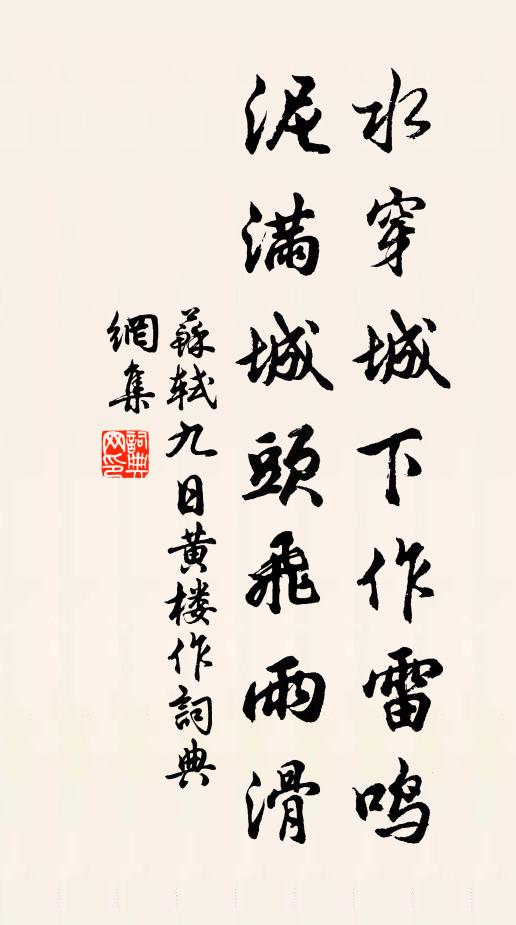 水穿城下作雷鸣
泥满城頭飛雨滑
蘇軾九日黄楼作詞典
網集
詞典网印